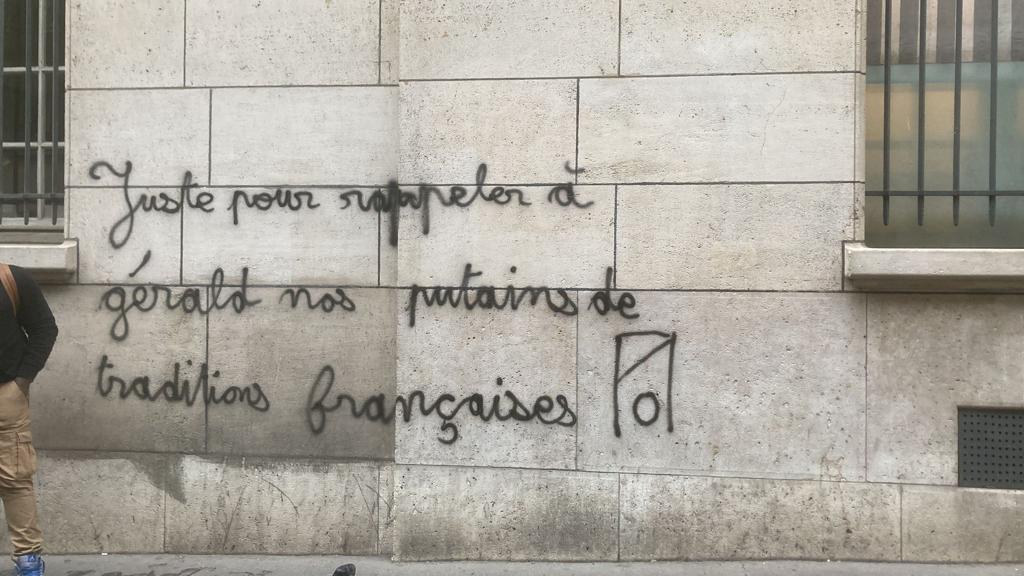 Juste pour rappeler à
gérald nos putains de
traditions françaises